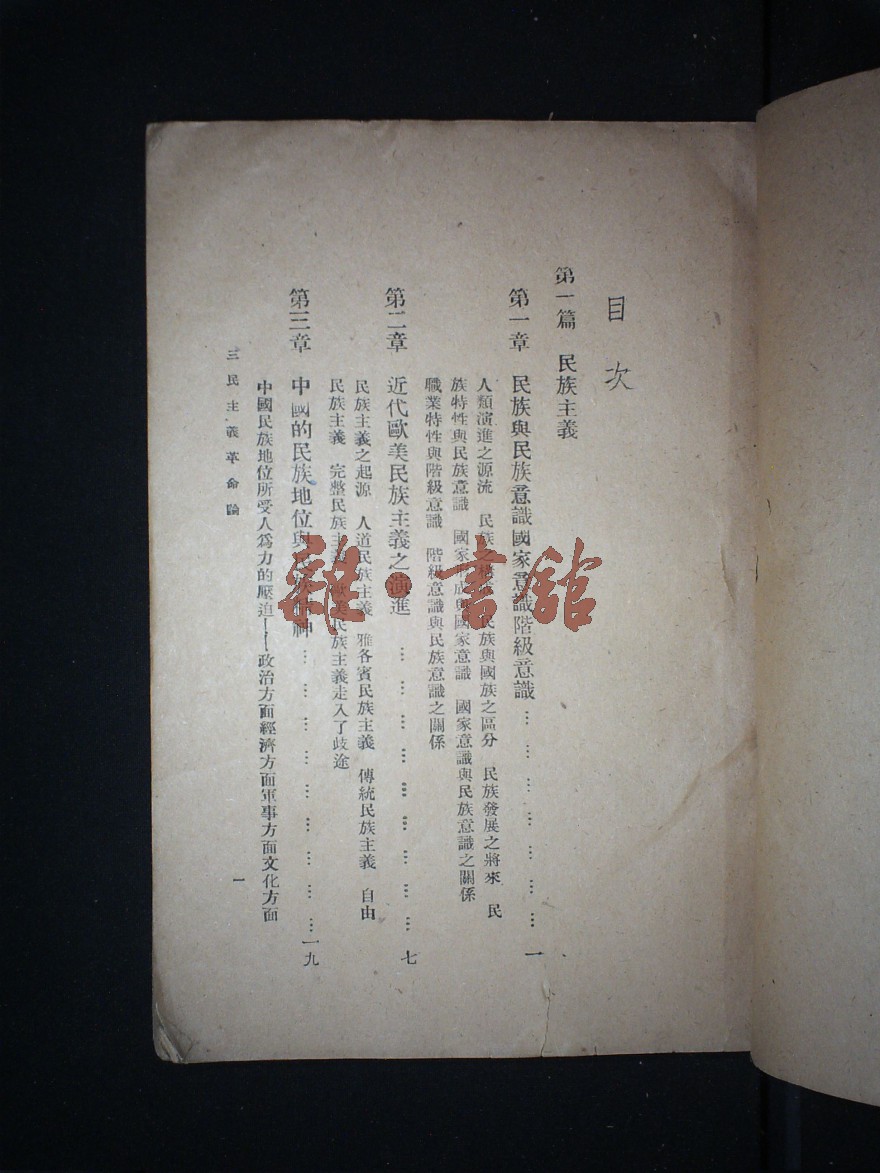 目次
第一篇　民族主義
第一章　民族與民族意識國家意識階級意識………………………一
人類演進之源流　民族之構成　民族與國族之區分　民族發展之將來　民
族特性與民族意識　國家形成與國家意識　國家意識與民族意識之關係
職業特性與階級意識　階級意識與民族意識之關係
第二章　近代歐美民族主義之演進………………………七
民族主義之起源　人道民族主義　雅各賓民族主義　傳統民族主義　自由
民族主義　完整民族主義　歐美民族主義走入了歧途
第三章　中國的民族地位與民族精神………………………一九
中國民族地位所受人爲力的壓迫——政治方面經濟方面軍事方面文化方面
三民主義革命論
一
雜·書館